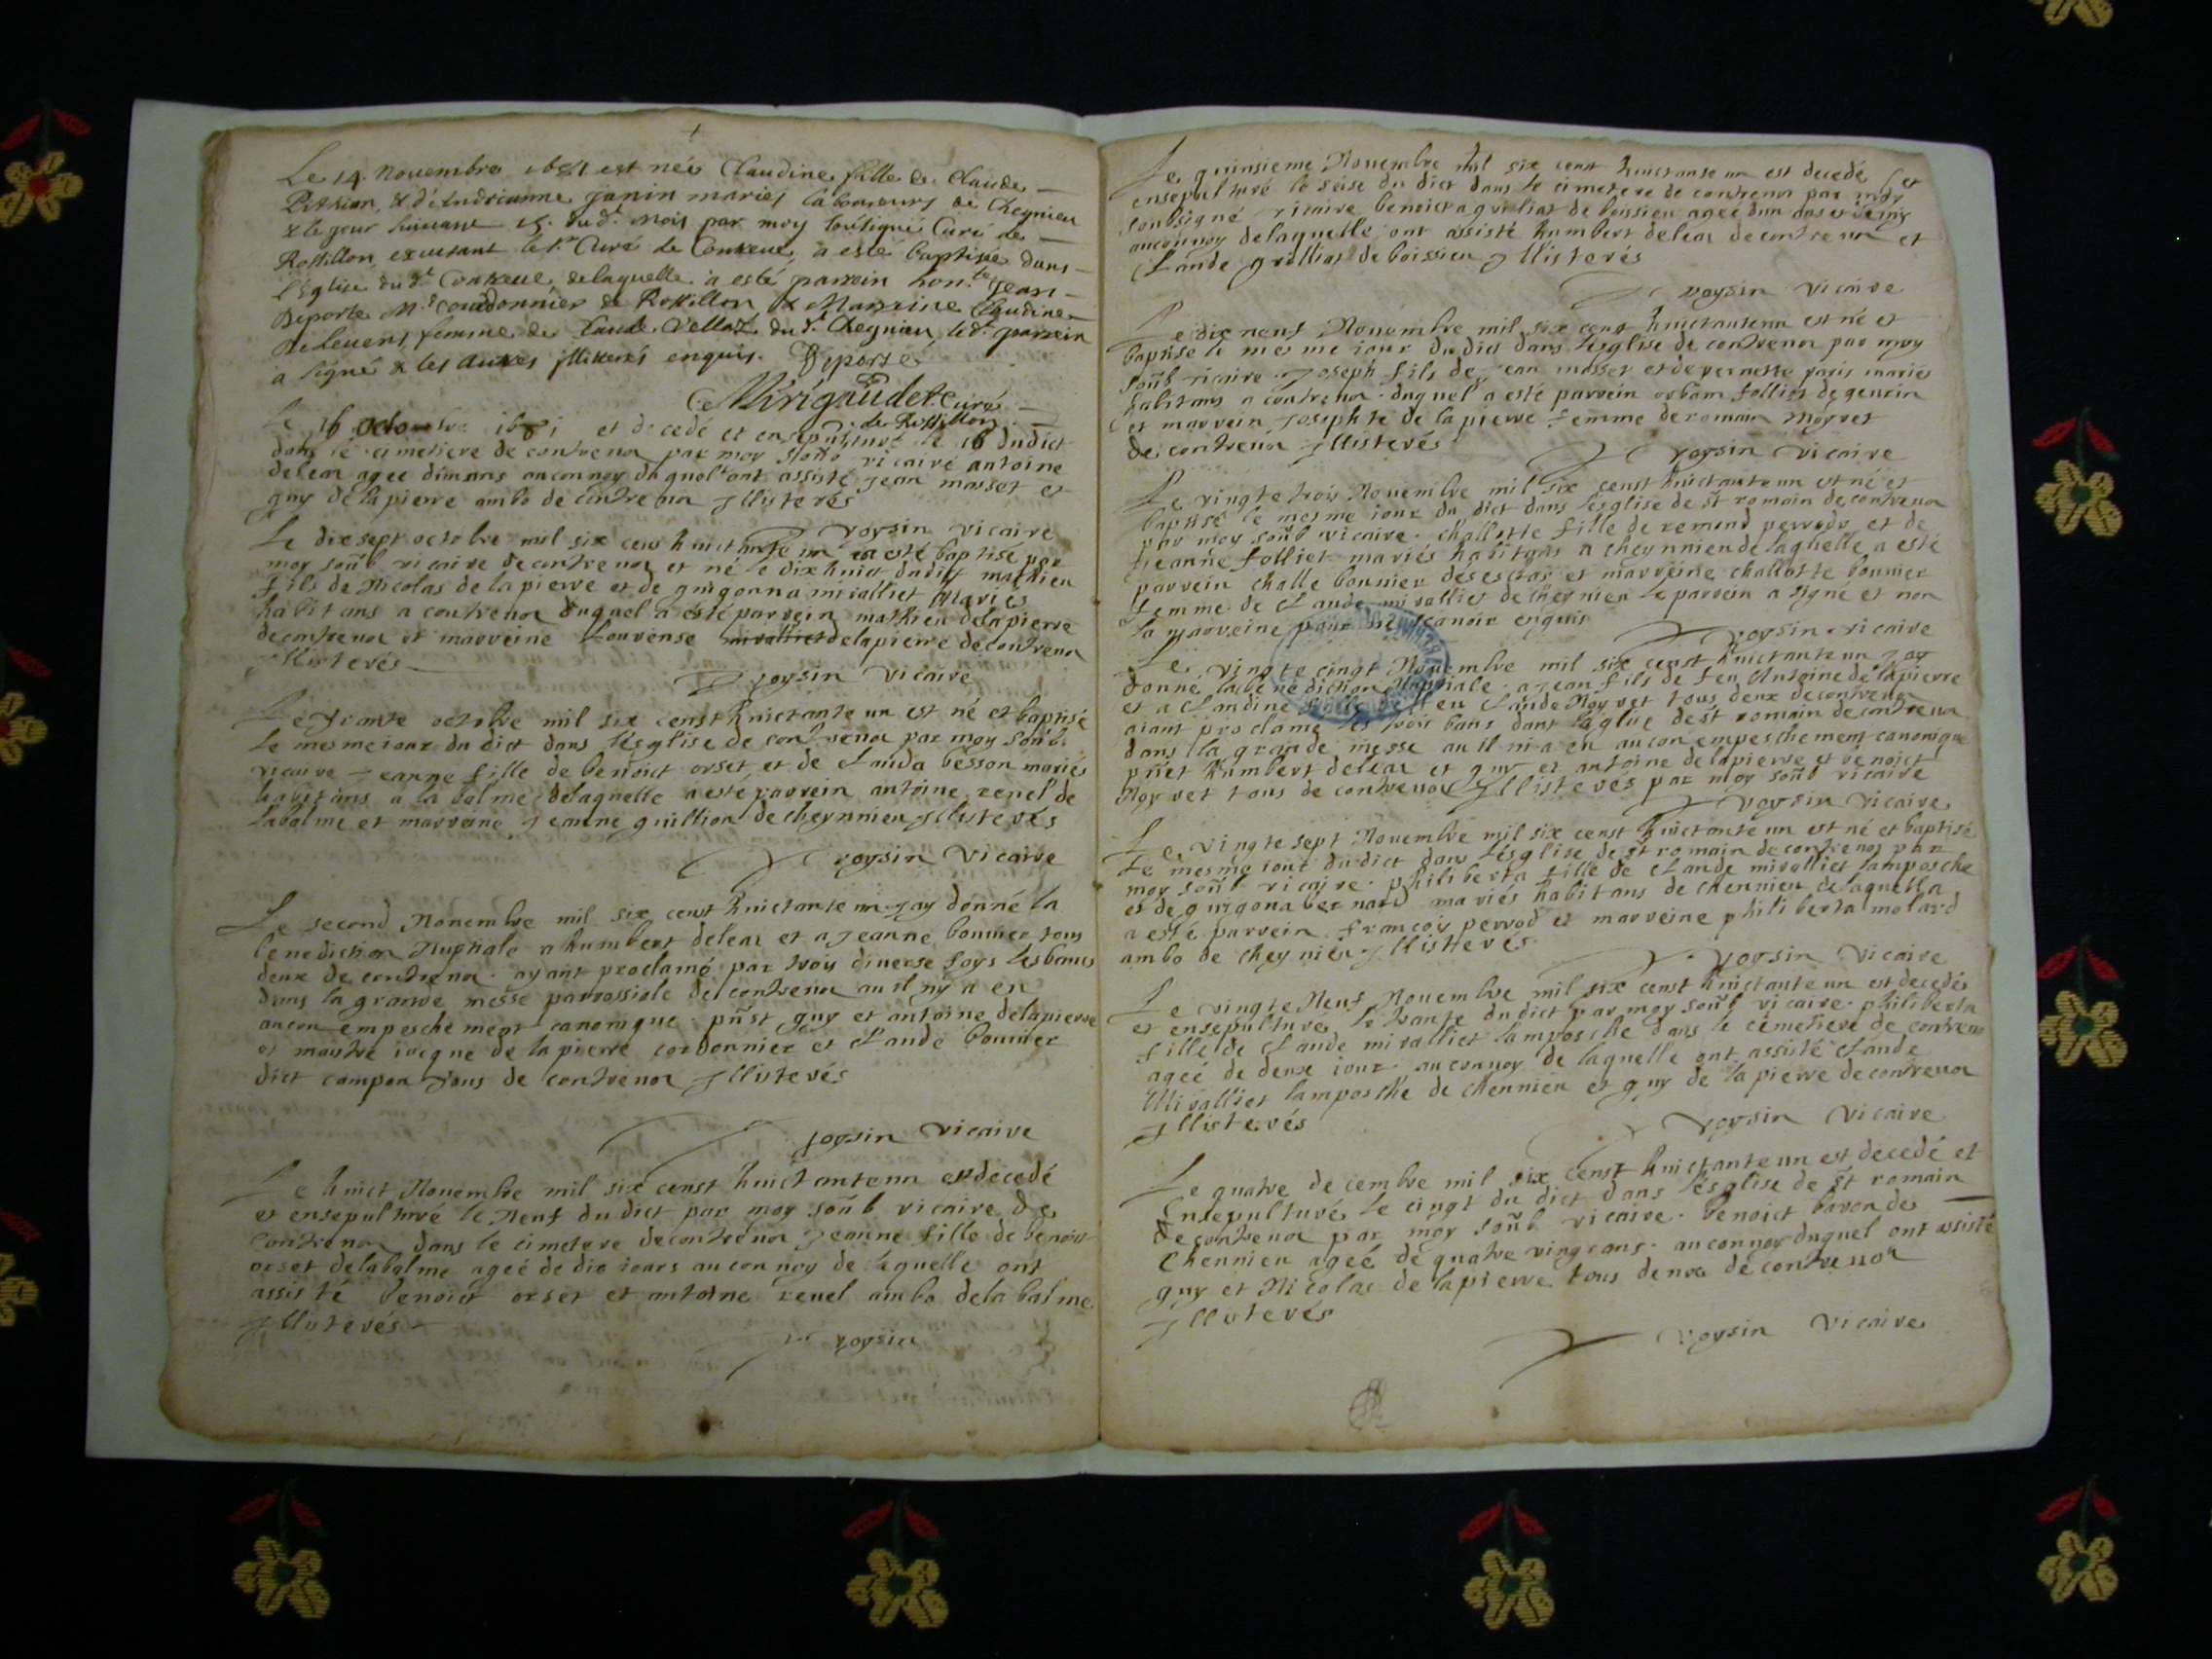 Le 14. Novembre 1681 est neé Claudine fille de Claude
& d'Andrieanne Janin mariés laboureurs de Chegnieu
& le jour suivant 15. dud.t mois par moy soubsigné Curé de
Rossillon, excusant le s.r Curé de Contreue, a esté baptisée dans
l'Eglise dud.t Contreue, de laquelle a esté parrein hon.ble Jean
Deporte M.e courdonnier de Rossillon & Marreine Claudine
femme de Claude Vellaz dud.t Chegnieu, led.t parrein
a signé & les autres illiterés enquis. Deporte
Curé
de Rossillon
Le 16 octobre 1681 et decedé et ensepulturé le 18 dudict
dans le cimetiere de contrevoz par moy vicaire antoine
deleaz ageé auconnoy duquel ont assisté Jean masset et
guy de la pierre ambo de contrevoz Illisterés
voysin vicaire
Le dix sept octobre mil six cens huictante un a esté baptisé par
moy soub vicaire de contrevoz et né le dix huict dudict mathieu
fils de Nicolas de la pierre et de guigonna miralliet Mariés
habitans a contrevoz duquel a esté parrein mathieu delapierre
de contrevoz et marreine Lourense delapierre de contrevoz
Illisterés
voysin vicaire
Le trante octobre mil six censt huictante un est né et baptisé
le mesme iour du dict dans l'esglise de contrevoz par moy soub.
vicaire Jeanne fille de benoict orset et de Clauda besson mariés
habitans a la balme delaquelle a esté parrein antoine revel de
labalme et marreine Jeanne guillion de cheynnieu Illisterés
voysin vicaire
Le second Novembre mil six censt huictante un Jay donné la
benediction Nuptiale a humbert deleaz et a Jeanne bonnier tous
deux de contrevoz. ayant proclamé par trois diverse foys les bancs
dans la grande messe parrossiale de contrevoz au il ny a eu
aucon empeschement canonique. pnst guy et antoine delapierre
et maistre iacque de la pierre cordonnier et Claude bonnier
dict compon tous de contrevoz Illisterés
voysin vicaire
Le huict Novembre mil six censt huictante un est decedé
et ensepulturé le Neuf du dict par moy soub vicaire de
contrevoz dans le cimetere de contrevoz Jeanne fille de benoict
orset delabalme ageé de dix iours au connoy de laquelle ont
assisté benoict orset et antoine revel ambo dela balme
Illisterés
voysin
Le quinsieme Novembre mil six censt huictante un est decedé et
ensepulturé le seise du dict dans le cimetere de contrevoz par moy
soubsigné vicaire benoicta grolliat de boissieu ageé dun ans et demy
auconnoy delaquelle ont assisté humbert deleaz de contrevoz et
Claude grolliat de boissieu Illisterés
voysin vicaire
Le dix neuf Novembre mil six censt huictanteun est né et
baptisé le mesme iour du dict dans l'esglise de contrevoz par moy
soub vicaire. Joseph fils de Jean masset et de pernette paris mariés
habitans a contrevoz. duquel a esté parrein orbain folliet de
et marrein Josephte de la pierre femme de romain Moyret
de contrevoz Illisterés
voysin vicaire
Le vingte trois Novembre mil six censt huictante un est né et
baptisé le mesme iour du dict dans l'esglise de st romain de contrevoz
par moy soub vicaire. challotte fille de remond perrodo et de
Jeanne folliet mariés habitans a cheynnieu delaquelle a esté
parrein challe bonnier et marreine challotte bonnier
femme de Claude miralliet de cheynieu le parrein a signé et non
la marreine pour ne scavoir enquis
voysin vicaire
Le vingte cingt Novembre mil six censt huictante un Jay
donné la benediction Nuptiale a Jean fils de feu Antoine delapierre
et a Claudine fille de feu Claude Moyret tous deux de contrevoz
aiant proclamé les trois bans dans laglise de st romain de contrevoz
dans la grande messe au il ni a eu aucon empeschement canonique
pnst humbert deleaz et guy et antoine delapierre et benoict
Moyret tous de contrevoz Illisterés par moy soub vicaire
voysin vicaire
Le vingte sept Novembre mil six censt huictante un est né et baptisé
le mesme iour du dict dans l'esglise de st romain de contrevoz par
moy soub vicaire. philiberta fille de Claude miralliet lamposche
et de guigona bernard mariés habitans de chennieu delaquella
a esté parrein françois perrod et marreine philiberta molard
ambo de cheynieu Illisterés
voysin vicaire
Le vingte Neuf Novembre mil six censt huictante un est decedés
et ensepulturés le trante du dict par moy soub vicaire. philiberta
fille de Claude miralliet lamposche dans le cemetiere de contrevoz
ageé de deux iour. au connoy de laquelle ont assisté Claude
Miralliet lamposche de chennieu et guy de la pierre de contrevoz
Illisterés
voysin vicaire
Le quatre decembre mil six censt huictante un est decedé et
Ensepulturé le cingt du dict dans l'esglise de st romain
de contrevoz par moy soub vicaire. benoict de
Chennieu ageé de quatre vingt ans. auconnoy duquel ont assisté
guy et Nicolas de lapierre tous deux de contrevoz
Illisterés
voysin vicaire